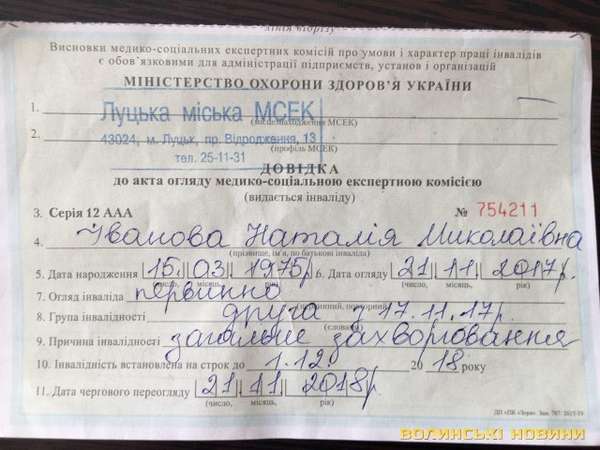 лінія відрізу
Висновки медико-соціальних експертних комісій про умови і характер праці інвалідів
є обов'язковими для адміністрації підприємств, установ і організацій
МІНІСТЕРСТВО ОХОРОНИ ЗДОРОВ'Я УКРАЇНИ
1. Луцька міська МСЕК
(місцезнаходження МСЕК)
43024, м. Луцьк, пр. Відродження, 13
2.
(профіль МСЕК)
тел. 25-11-31
ДОВІДКА
до акта огляду медико-соціальною експертною комісією
(видається інваліду)
3. Серія 12 ААА № 754211
4. Іванова Наталія Миколаївна
(прізвище, ім'я, по батькові інваліда)
5. Дата народження 15.03.1975р. 6. Дата огляду 21.11.2017р.
(число, місяць, рік) (число, місяць, рік)
7. Огляд інваліда первинно
(первинний, повторний)
8. Група інвалідності друга з 17.11.17р.
(словами)
9. Причина інвалідності загальне захворювання
10. Інвалідність встановлена на строк до 1.12. 2018 року
11. Дата чергового переогляду 21 11 2018р
(число, місяць, рік)
ВОЛИНСЬКІ НОВИНИ